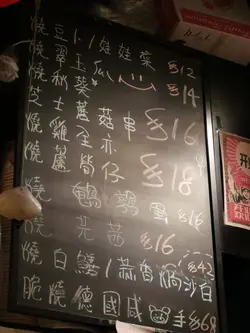 燒豆卜/娃娃菜 $12
燒翠玉瓜 $14
燒秋葵
芝士菇串 $16
燒雞全亦
燒蘆筍仔 $18
燒鵪鶉蛋
燒芫茜 $16
燒白鱔/蒜香焗沙白 $42
脆燒德國咸手 $68